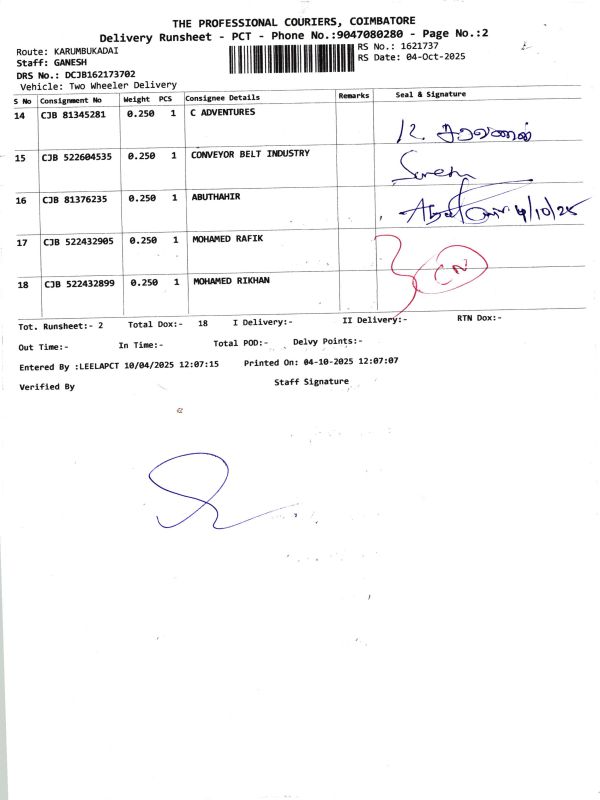 THE PROFESSIONAL COURIERS, COIMBATORE
Delivery Runsheet - PCT - Phone No.:9047080280 - Page No.:2
Route: KARUMBUKADAI
RS No.: 1621737
Staff: GANESH
RS Date: 04-Oct-2025
DRS No.: DCJB162173702
Vehicle: Two Wheeler Delivery
S No Consignment No Weight PCS Consignee Details Remarks Seal & Signature
14 CJB 81345281 0.250 1 C ADVENTURES
15 CJB 522604535 0.250 1 CONVEYOR BELT INDUSTRY Suresh
16 CJB 81376235 0.250 1 ABUTHAHIR 4/10/25
17 CJB 522432905 0.250 1 MOHAMED RAFIK
CN
18 CJB 522432899 0.250 1 MOHAMED RIKHAN
Tot. Runsheet:- 2 Total Dox:- 18 I Delivery:- II Delivery:- RTN Dox:-
Out Time:- In Time:- Total POD:- Delvy Points:-
Entered By :LEELAPCT 10/04/2025 12:07:15 Printed On: 04-10-2025 12:07:07
Verified By Staff Signature